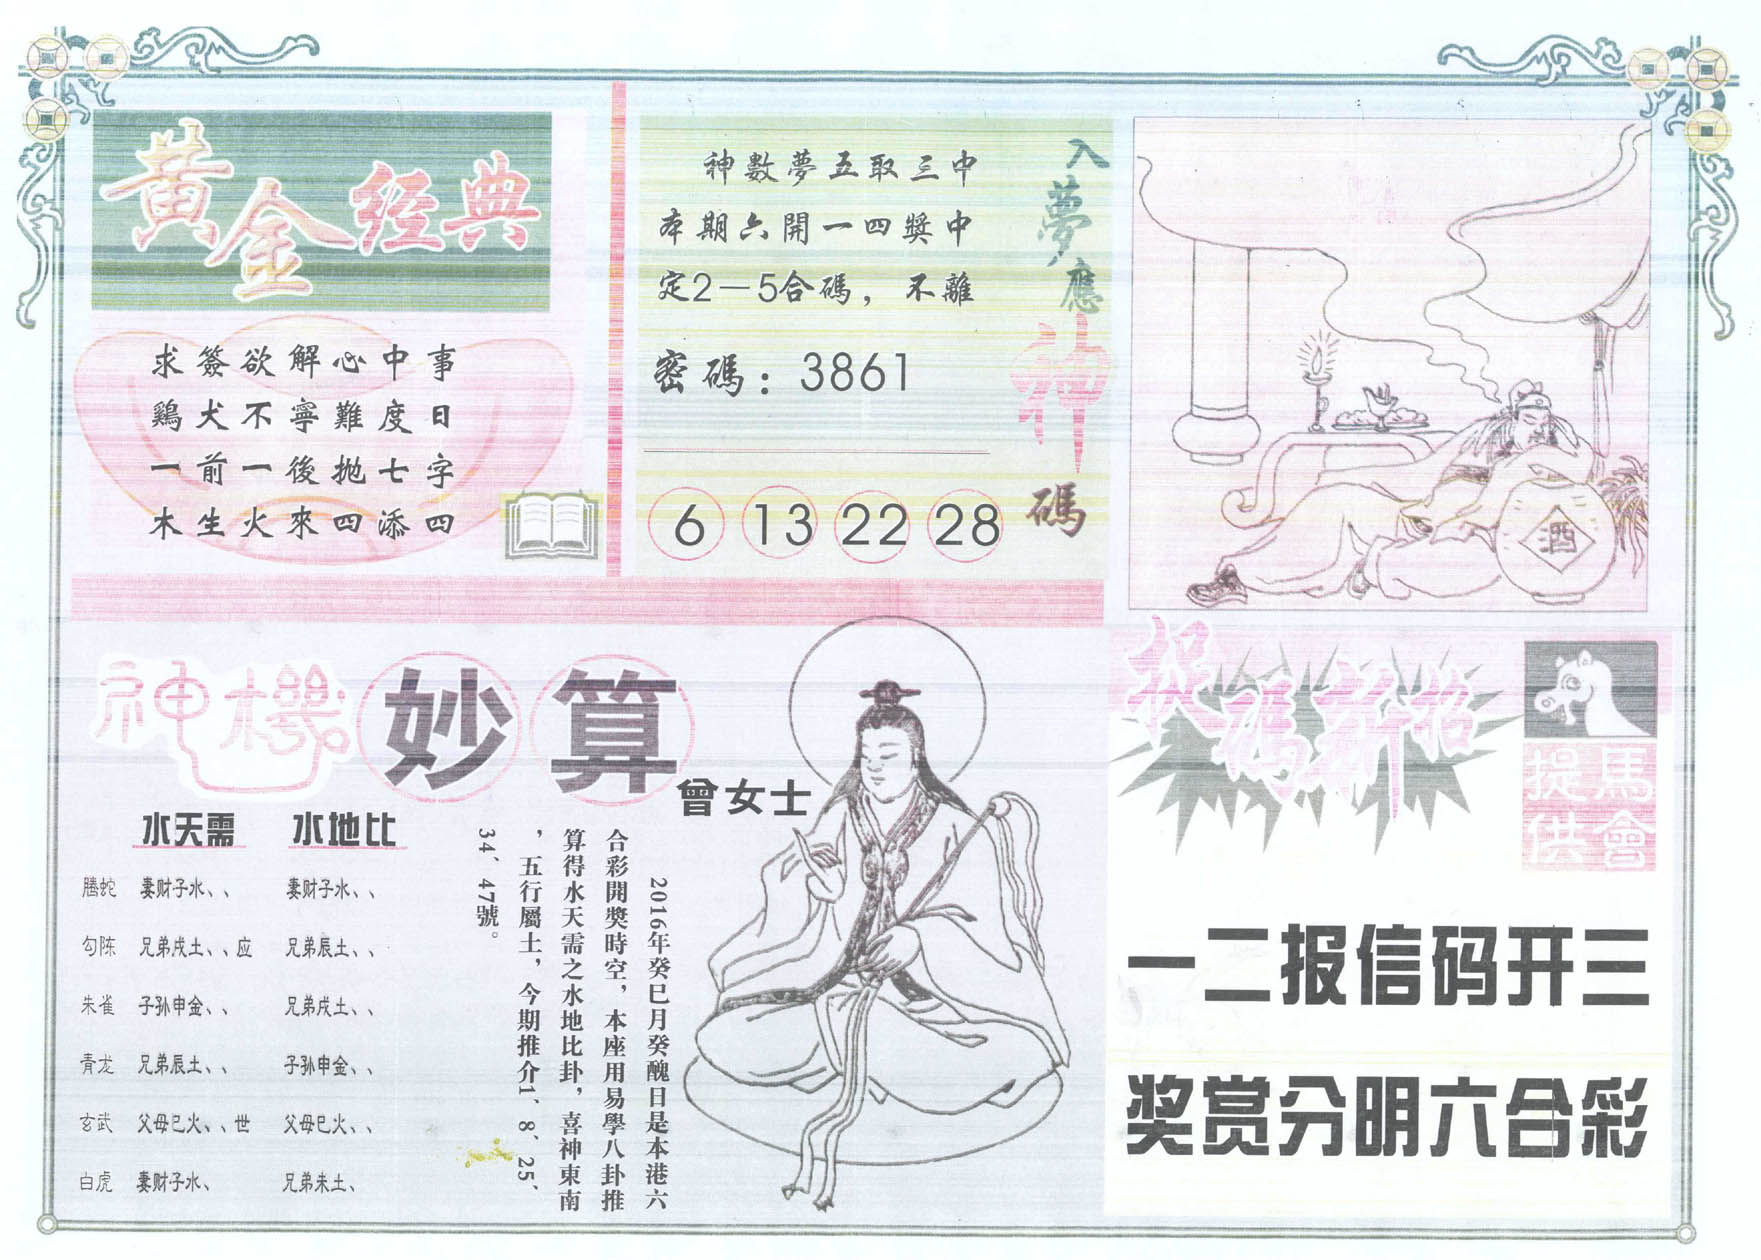 黄金经典
求簽欲解心中事
鷄犬不寧難度日
一前一後拋七字
木生火來四添四
神數夢五取三中
本期六開一四獎中
定2－5合碼，不離
密碼：3861
6 13 22 28
入夢應神碼
酒
神機妙算
曾女士
水天需 水地比
腾蛇 妻财子水、、 妻财子水、、
勾陈 兄弟戌土、、应 兄弟辰土、、
朱雀 子孙申金、、 兄弟戌土、、
青龙 兄弟辰土、、 子孙申金、、
玄武 父母巳火、、世 父母巳火、、
白虎 妻财子水、 兄弟未土、
2016年癸巳月癸醜日是本港六
合彩開獎時空，本座用易學八卦推
算得水天需之水地比卦，喜神東南
，五行屬土，今期推介1、8、25、
34、47號。
捉碼新招
捉馬
供會
一二报信码开三
奖赏分明六合彩